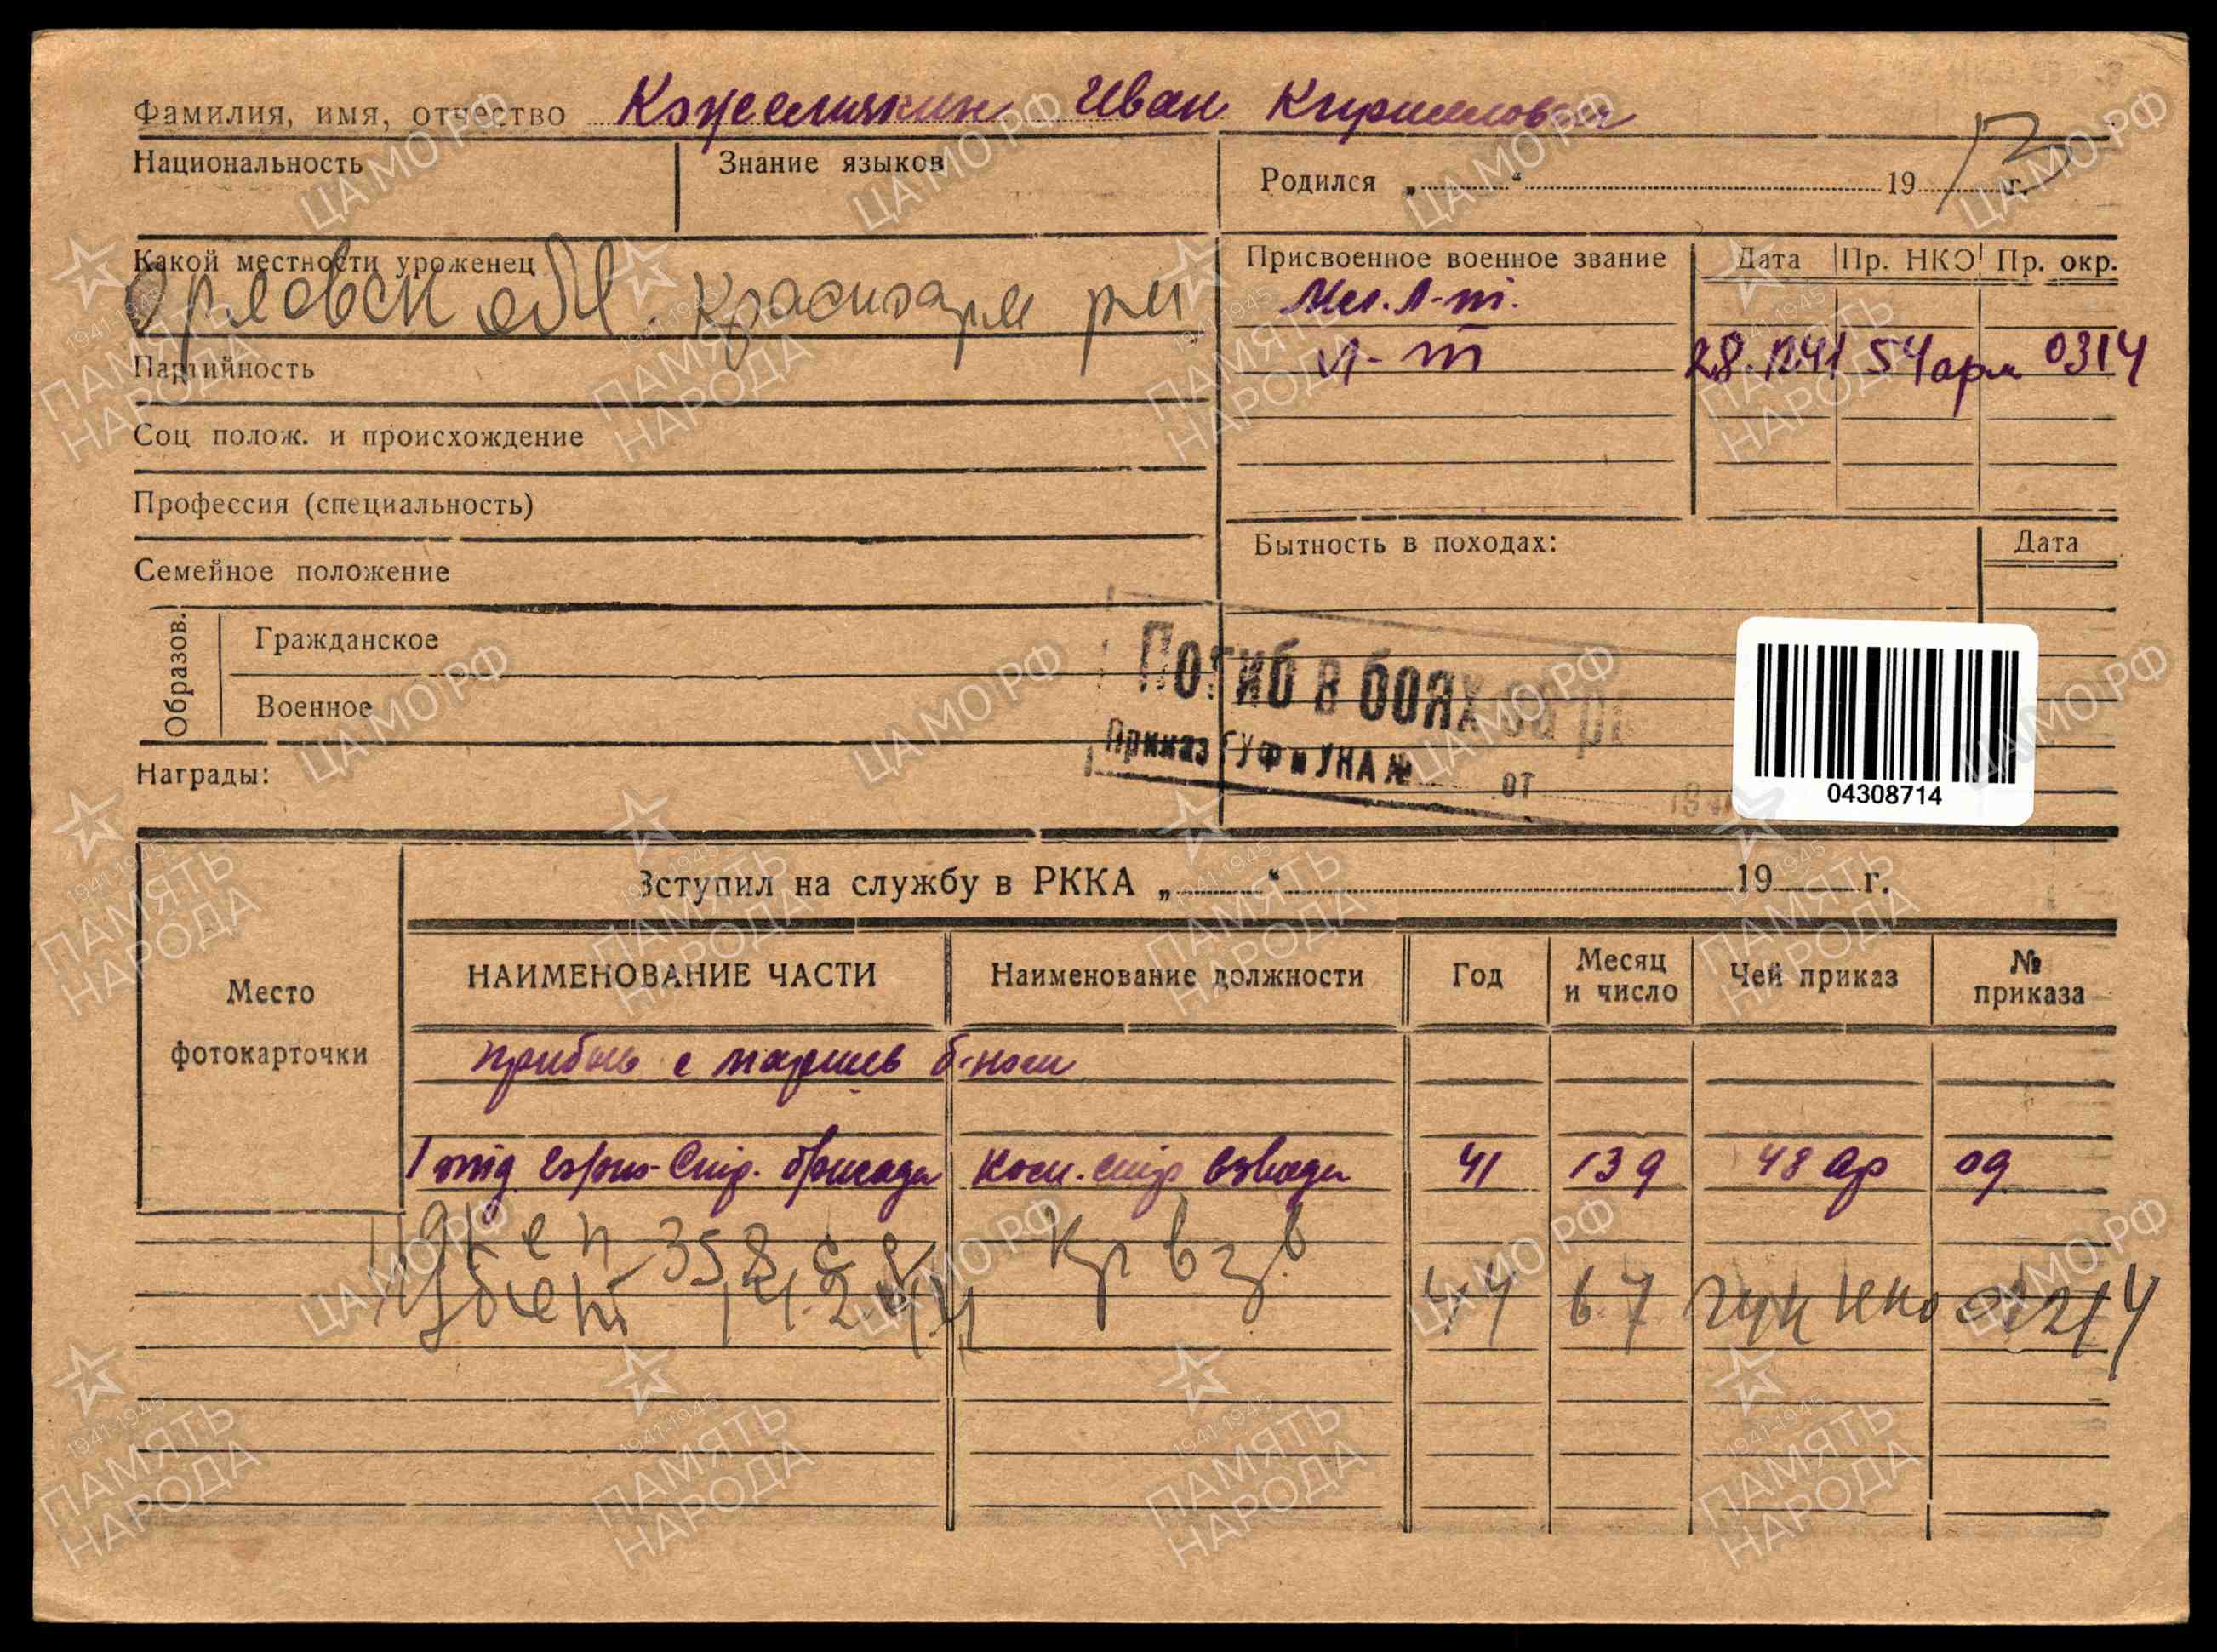 Фамилия, имя, отчество Кожемякин Иван Кириллович
Национальность
Знание языков
Родился „ “ 1913 г.
Какой местности уроженец
Орловск обл.
Партийность
Соц полож. и происхождение
Профессия (специальность)
Семейное положение
Образов.
Гражданское
Военное
Награды:
Присвоенное военное звание Дата Пр. НКО Пр. окр.
Мл. л-т.
л-т 54 арм 0314
Бытность в походах: Дата
Погиб в боях за
Приказ ГУФ и УНА № от 194
04308714
Вступил на службу в РККА „ “ 19 г.
Место
фотокарточки
НАИМЕНОВАНИЕ ЧАСТИ Наименование должности Год Месяц и число Чей приказ № приказа
прибыл с маршев б-ном
1 отд Стр. бригада Ком. стр взвода 41 48 ар 09
358 с д к-р взв
Убит 14.2.44 44 6.7 ГУК НКО 02214
ЦАМО РФ
1941-1945
ПАМЯТЬ
НАРОДА